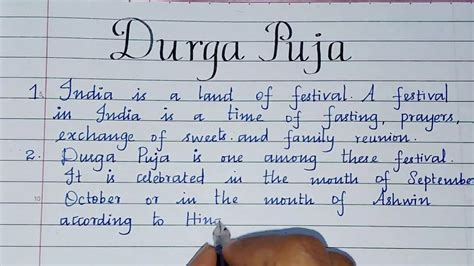 Durga Puja
1. India is a land of festival. A festival
in India is a time of fasting, prayers,
exchange of sweets and family reunion.
2. Durga Puja is one among these festival.
It is celebrated in the month of September
October or in the month of Ashwin
according to Hin